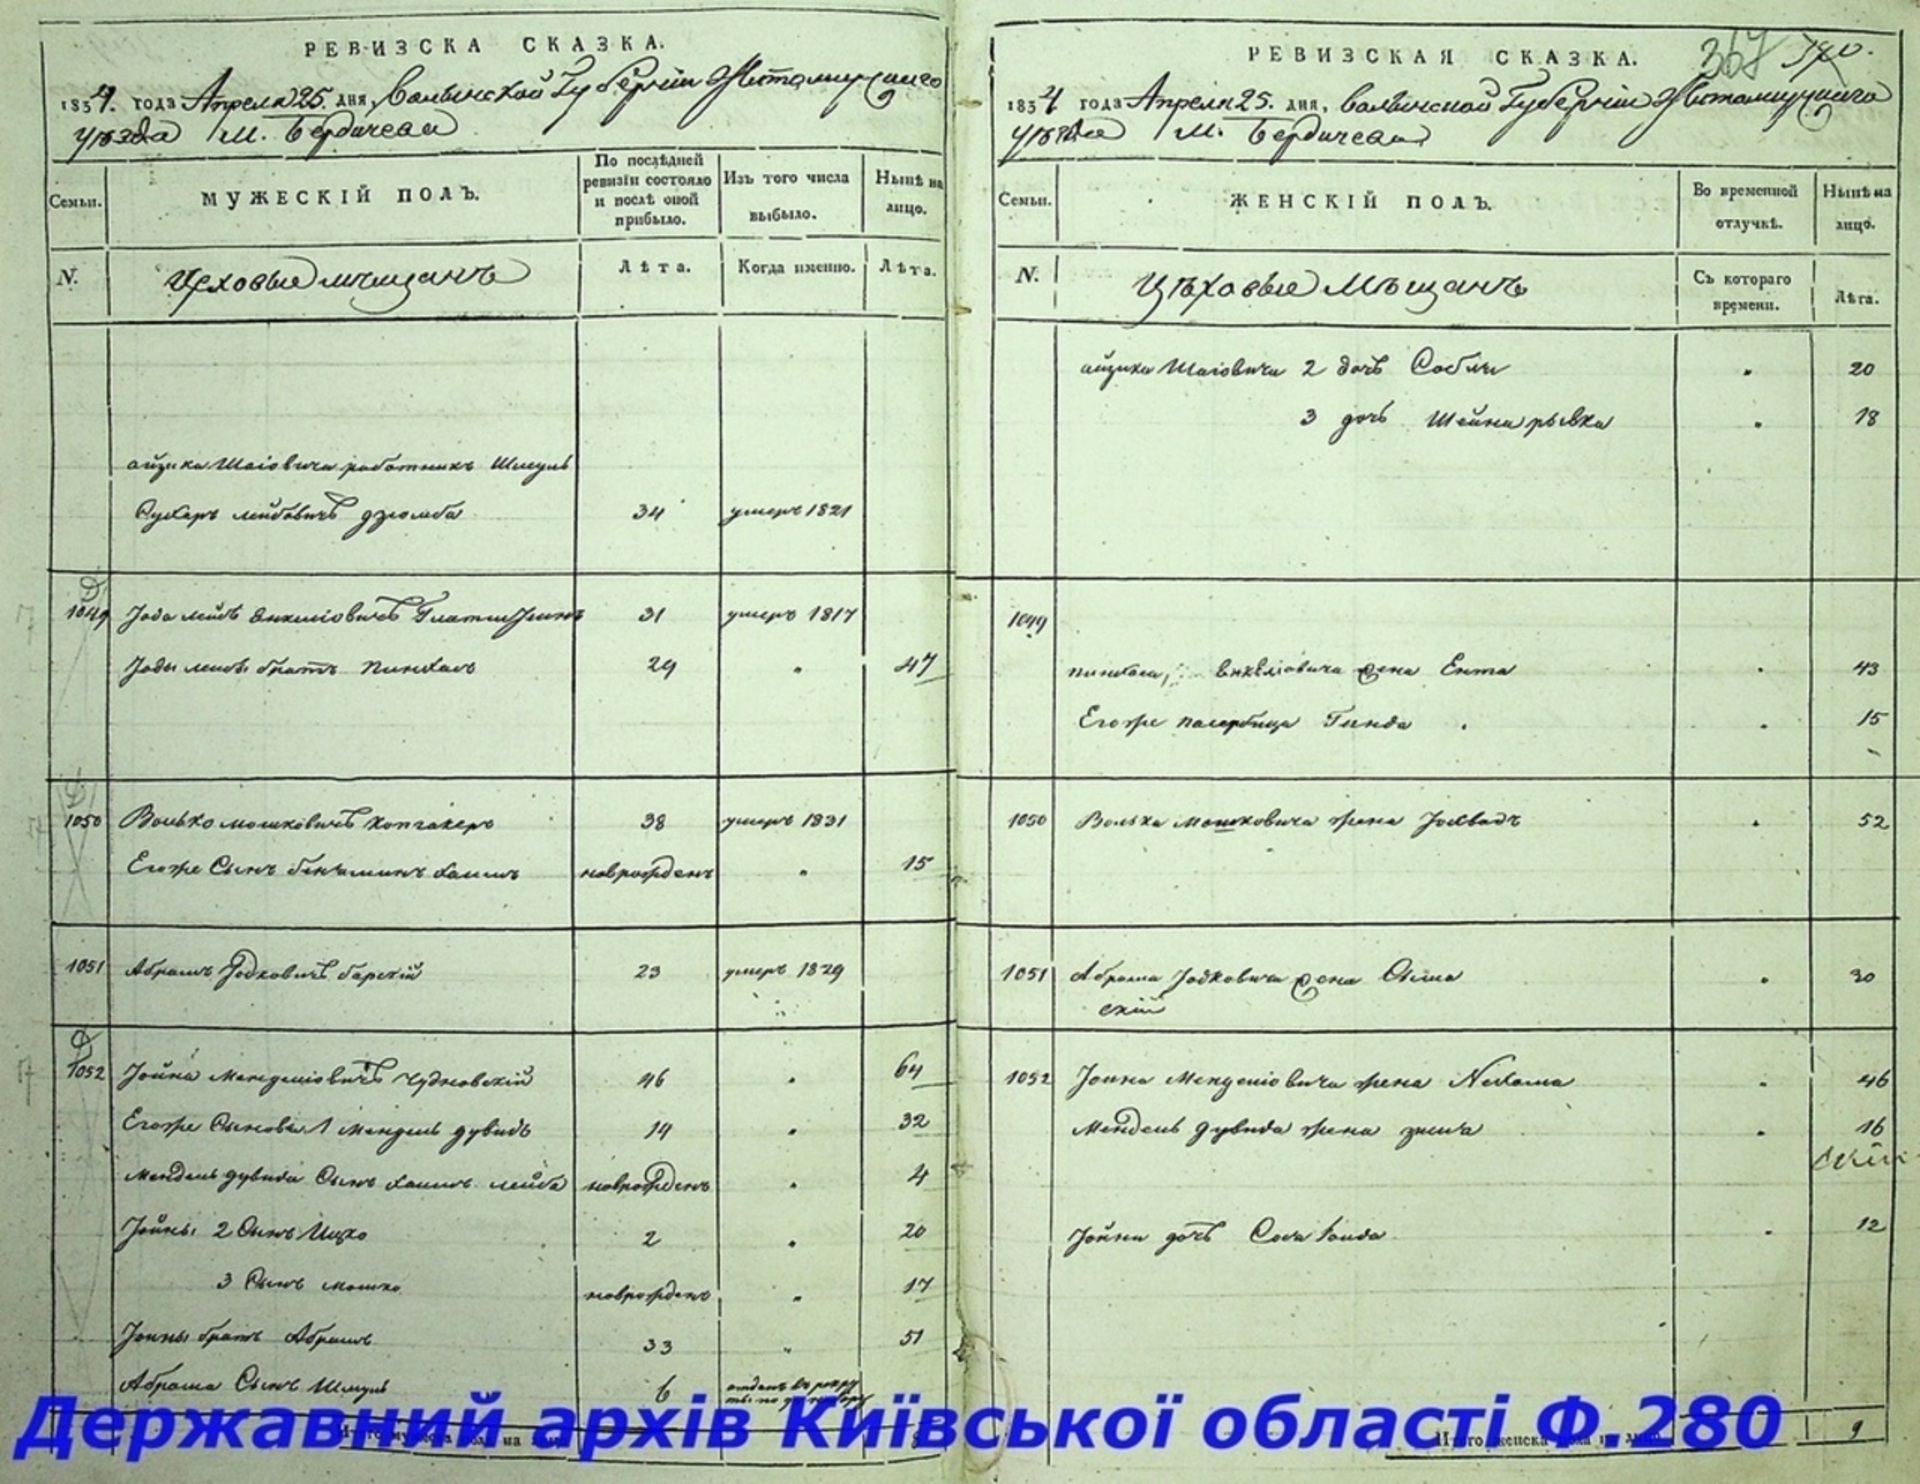 РЕВИЗСКА СКАЗКА.
1834. года Апреля 25. дня, Волынской Губернiи Житомирскаго
уѣзда М. Бердичева
Семьи.
МУЖЕСКIЙ ПОЛЪ.
По послѣдней ревизiи состояло и послѣ оной прибыло.
Изъ того числа выбыло.
Нынѣ на лицо.
N.
Цеховые мещанъ
Лѣта.
Когда именно.
Лѣта.
айзика Шаiовича работникъ Шмуль
Сухеръ лейбовичъ 34 умеръ 1821
1049 Iода лейбъ 31 умеръ 1817
Iоды лейбы братъ Пинхасъ 29 " 47
1050 Волько мошковичъ 38 умеръ 1831
Егоже Сынъ хаимъ новрожденъ " 15
1051 Абрамъ Iодковичъ барскiй 23 умеръ 1829
1052 Iойна Менделiовичъ Чудновскiй 46 " 64
Егоже Сыновья 1 Мендель дувидъ 14 " 32
Мендель дувида Сынъ хаимъ лейба новрожденъ " 4
Iойны 2 Сынъ Ицко 2 " 20
3 Сынъ мошко новрожденъ " 17
Iойны братъ Абрамъ 33 " 51
Абрама Сынъ Шмуль 6 отданъ въ рекруты по
РЕВИЗСКАЯ СКАЗКА.
367
1834 года Апреля 25. дня, Волынской Губернiи Житомирскаго
уѣзда М. Бердичева
Семьи.
ЖЕНСКIЙ ПОЛЪ.
Во временной отлучкѣ.
Нынѣ на лицо.
N.
Цѣховые Мѣщанъ
Съ котораго времени.
Лѣта.
айзика Шаiовича 2 дочь Собля " 20
3 дочь Шейна рывка " 18
1049
Пинхаса, жена Ента " 43
Егоже пасербица Гинда " 15
1050 Волька Мошковича жена Iохвадъ " 52
1051 Абрама Iодковича жена Сыма " 30
скiй
1052 Iойна Менделiовича жена Нехама " 46
Мендель дувида жена " 16
Iойны дочь " 12
Итого женска пола на лицо 9
Державний архів Київської області Ф.280